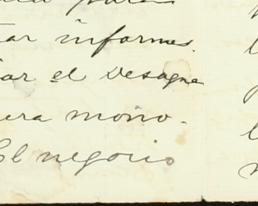 para
ar informes.
ar el desague
era moño-
El negocio